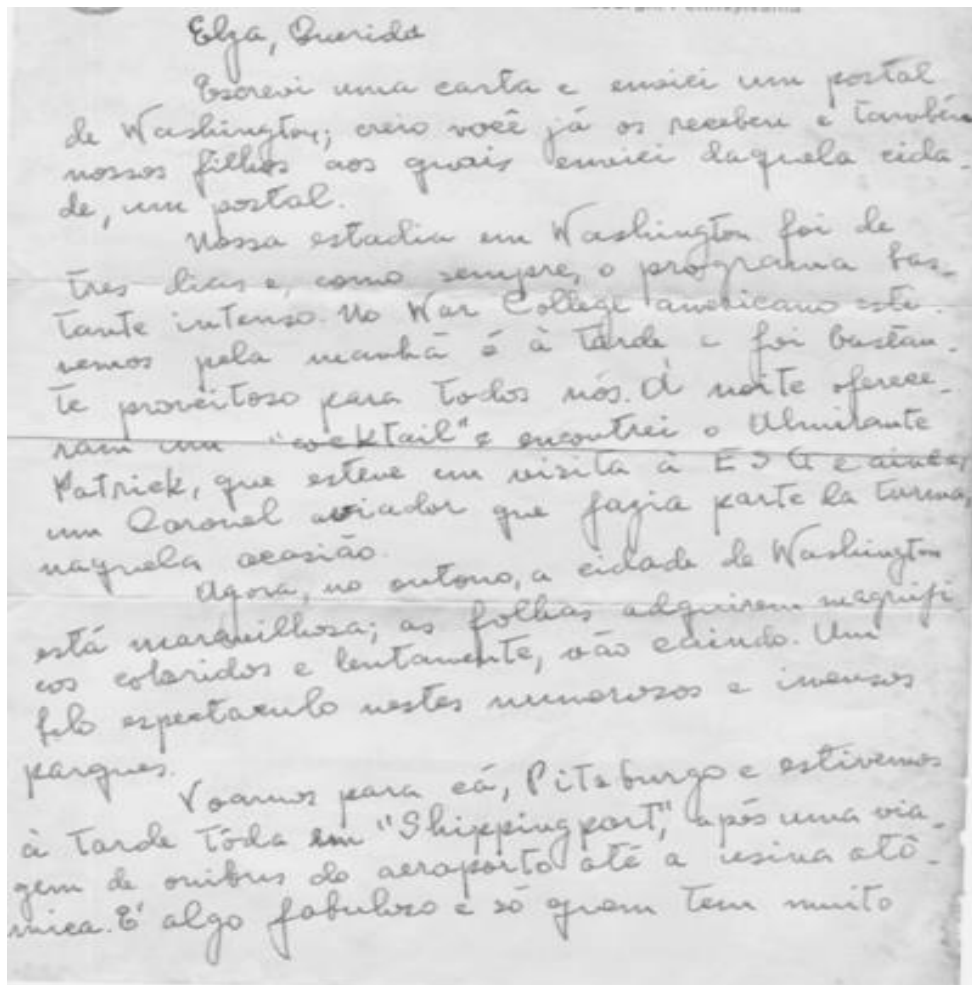 Elza, Querida
Escrevi uma carta e enviei um postal
de Washington; creio você já os recebeu e também
nossos filhos aos quais enviei daquela cida-
de, um postal.
Nossa estadia em Washington foi de
tres dias e, como sempre, o programa bas-
tante intenso. No War College americano esti-
vemos pela manhã e à tarde e foi bastan-
te proveitoso para todos nós. À noite oferece-
ram um "cocktail" e encontrei o Almirante
Patrick, que esteve em visita à ESG e ainda,
um Coronel aviador que fazia parte da turma,
naquela ocasião.
Agora, no outono, a cidade de Washington
está maravilhosa; as folhas adquirem magnifi
cos coloridos e lentamente, vão caindo. Um
belo espetaculo nestes numerosos e imensos
parques.
Voamos para cá, Pitsburgo e estivemos
à tarde tôda em "Shippingport", após uma via-
gem de onibus do aeroporto até a usina atô-
mica. É algo fabuloso e só quem tem muito